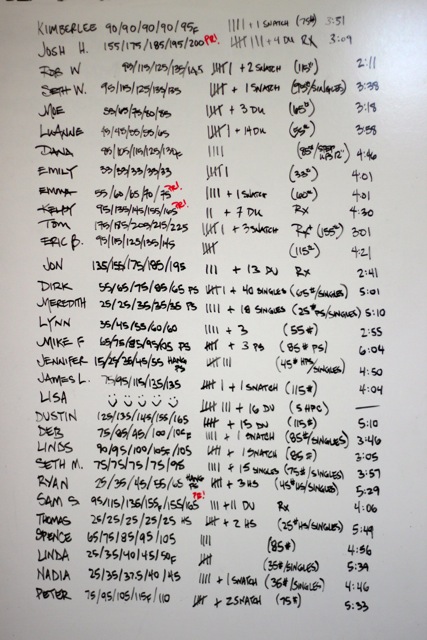 KIMBERLEE 90/90/90/90/95F IIII + 1 SNATCH (75#) 3:51
JOSH H. 155/175/185/195/200 PR! IIII III + 4 DU RX 3:09
ROB W 95/115/125/135/145 IIII I + 2 SNATCH (115#) 2:11
SETH W. 95/115/125/135/135 IIII + 1 SNATCH (95#/SINGLES) 3:38
MOE 55/65/75/80/85 IIII + 3 DU (65#) 3:18
LUANNE 40/45/55/55/65 IIII I + 14 DU (55#) 3:58
DANA IIII 4:46
EMILY 55/55/35/35/35 IIII I (33#) 4:01
EMMA 55/60/65/70/75 PR! IIII + 1 SNATCH (60#) 4:01
KELBY 95/135/145/155/165 PR! II + 7 DU RX 4:30
TOM 175/185/205/215/225 IIII I + 3 SNATCH RX (155#) 3:01
ERIC B. 95/115/125/135/145 IIII (115#) 4:21
JON 135/155/175/185/195 IIII + 13 DU RX 2:41
DIRK 55/65/75/85/65 PS IIII I + 40 SINGLES (65#/SINGLES) 5:01
MEREDITH 25/25/35/35/35 PS IIII + 18 SINGLES (25# PS/SINGLES) 5:10
LYNN 35/45/55/60/60 IIII + 3 (55#) 2:55
MIKE F 65/75/85/95/105 PS IIII + 3 PS (85# PS) 6:04
JENNIFER 15/25/35/45/55 HANG PS IIII III (45# HPS/SINGLES) 4:50
JAMES L. 75/95/115/125/135 IIII I + 1 SNATCH (115#) 4:04
LISA IIII III + 16 DU (5 HPC) —
DUSTIN 125/135/145/155/165 IIII + 15 DU (115#) 5:10
DEB 75/85/95/100/105F IIII I + 1 SNATCH (85#/SINGLES) 3:46
LINDS 90/95/100/105F/105 IIII + 1 SNATCH (85#) 3:05
SETH M. 75/75/75/75/95 IIII + 15 SINGLES (75#/SINGLES) 3:57
RYAN 25/35/45/55/65 HANG PS IIII + 3 HS (45# HS/SINGLES) 5:29
SAM S. 95/115/135/155F/155/165 PR! III + 11 DU RX 4:06
THOMAS 25/25/25/25/25 HS IIII + 2 HS (25# HS/SINGLES) 5:49
SPENCE 65/75/85/95/105 IIII (85#) 4:56
LINDA 25/35/40/45/50F IIII (35#/SINGLES) 5:39
NADIA 25/35/37.5/40/45 IIII + 1 SNATCH (35#/SINGLES) 4:46
PETER 75/95/105/115F/110 IIII + 2 SNATCH (75#) 5:33